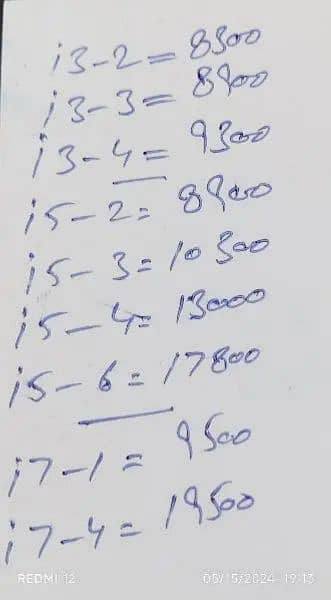 i3-2=8300
i3-3=8900
i3-4=9300
i5-2=8900
i5-3=10300
i5-4=13000
i5-6=17800
i7-1=9500
i7-4=19500
REDMI 12
05/15/2024 19:13